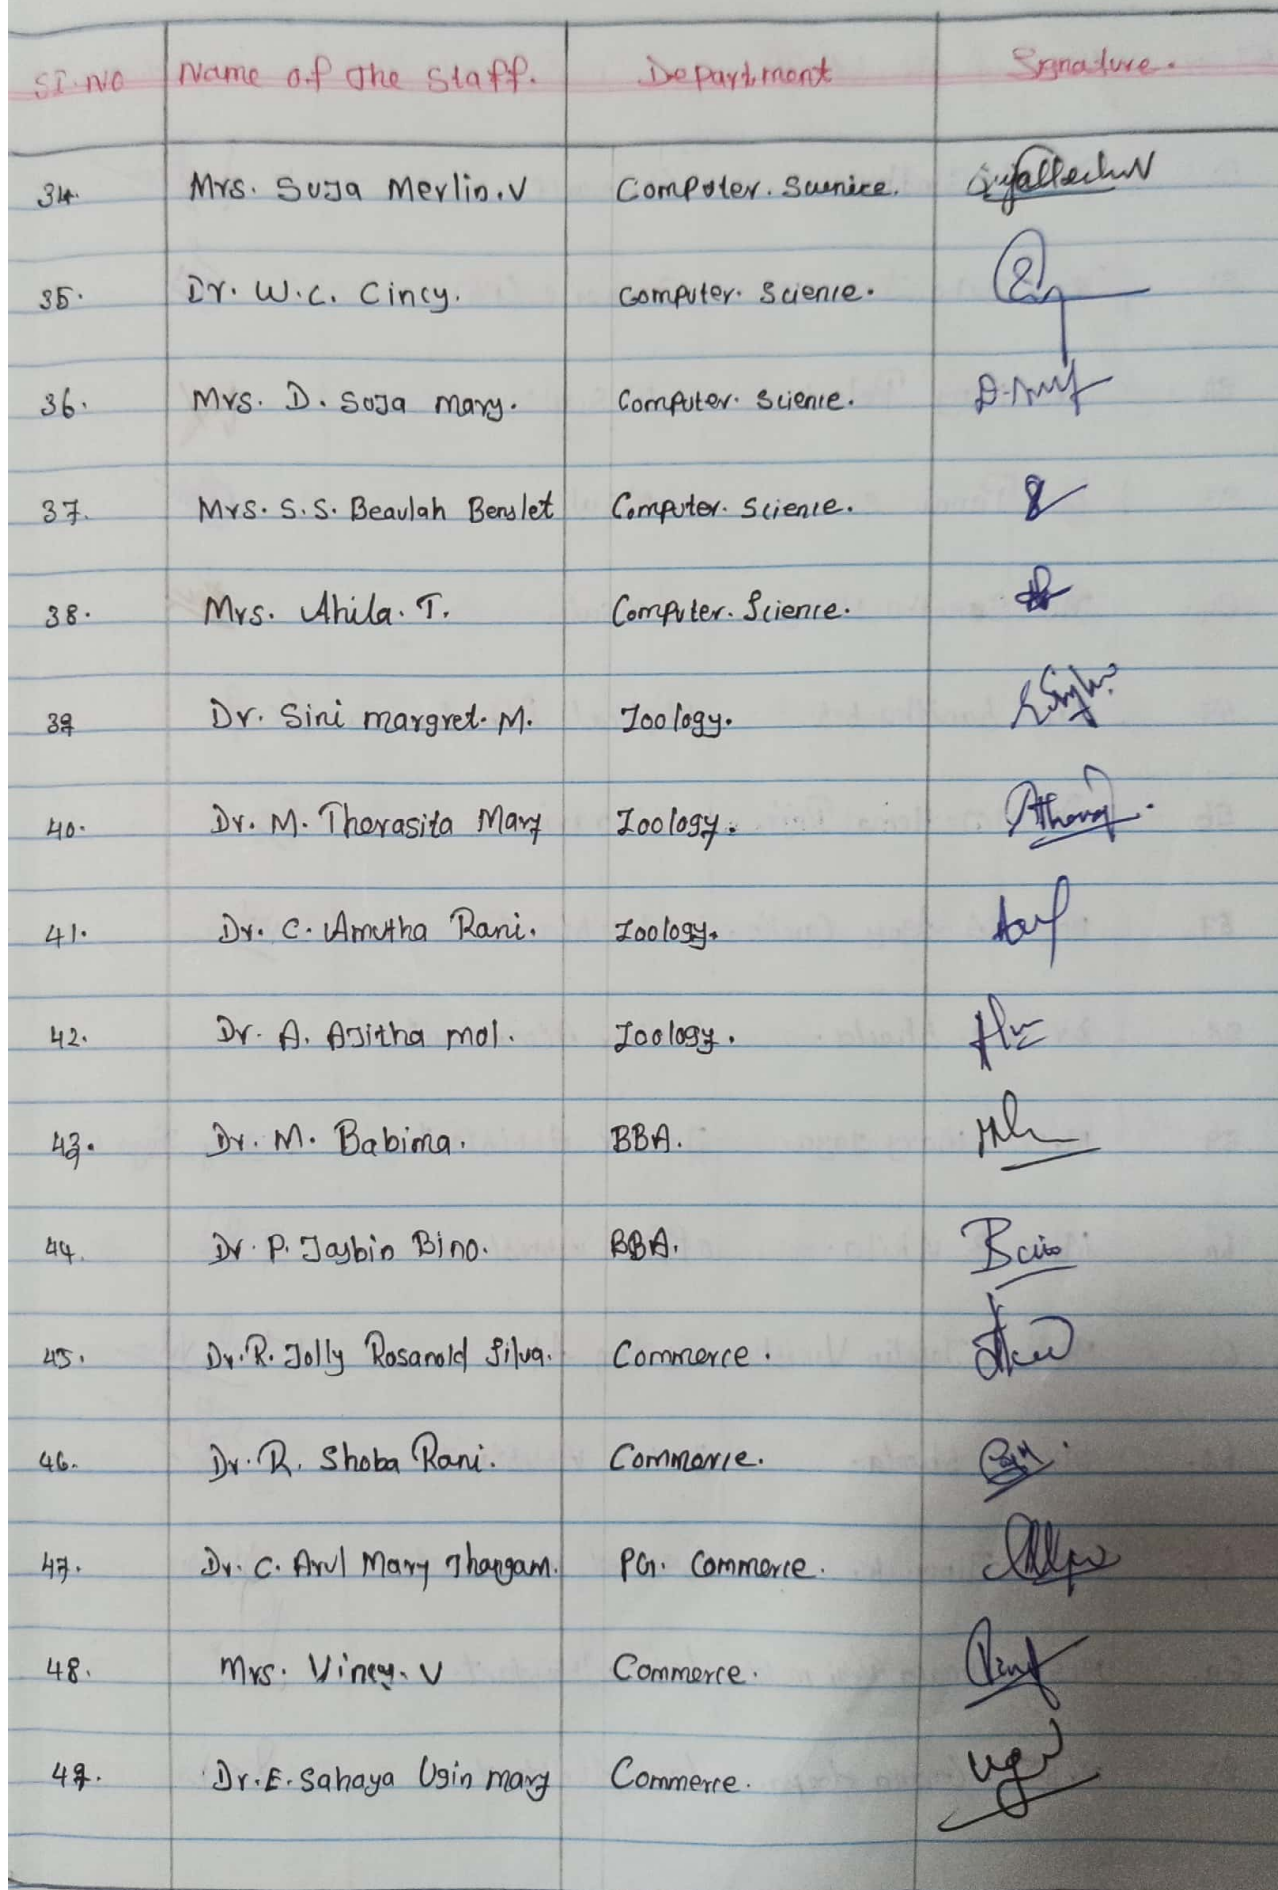 SI.NO Name of the Staff. Department Signature.
34. Mrs. Suja Merlin.V Computer. Science.
35. Dr. W.C. Cincy. Computer. Science.
36. Mrs. D. Suja Mary. Computer. Science.
37. Mrs. S.S. Beaulah Benslet Computer. Science.
38. Mrs. Ahila. T. Computer. Science.
39 Dr. Sini margret. M. Zoology.
40. Dr. M. Therasita Mary Zoology.
41. Dr. C. Amutha Rani. Zoology.
42. Dr. A. Ajitha mol. Zoology.
43. Dr. M. Babima. BBA.
44. Dr. P. Jasbin Bino. BBA.
45. Dr. R. Jolly Rosanold Silva. Commerce.
46. Dr. R. Shoba Rani. Commerce.
47. Dr. C. Arul Mary Thangam. PG. Commerce.
48. Mrs. Vincy. V Commerce.
49. Dr. E. Sahaya Ugin mary Commerce.